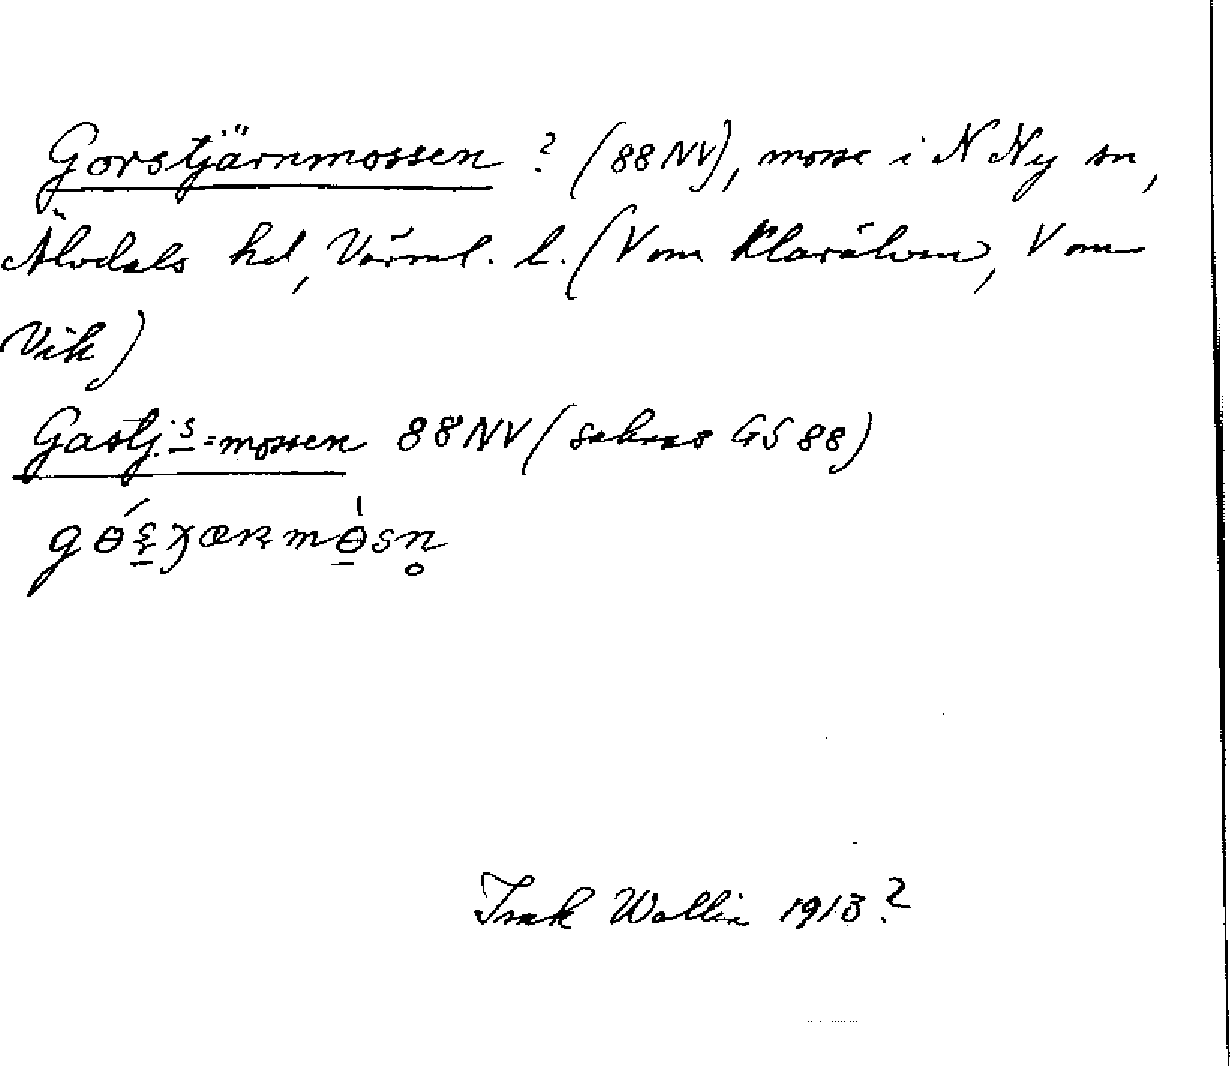 Gorstjärnmossen ? (88 NV), mosse i N Ny sn,
Älvdals hd, Värml. l. (V om Klarälven, V om
Vik)
Gastj.s=mossen 88 NV (saknas GS 88)
Isak Wallin 1913?